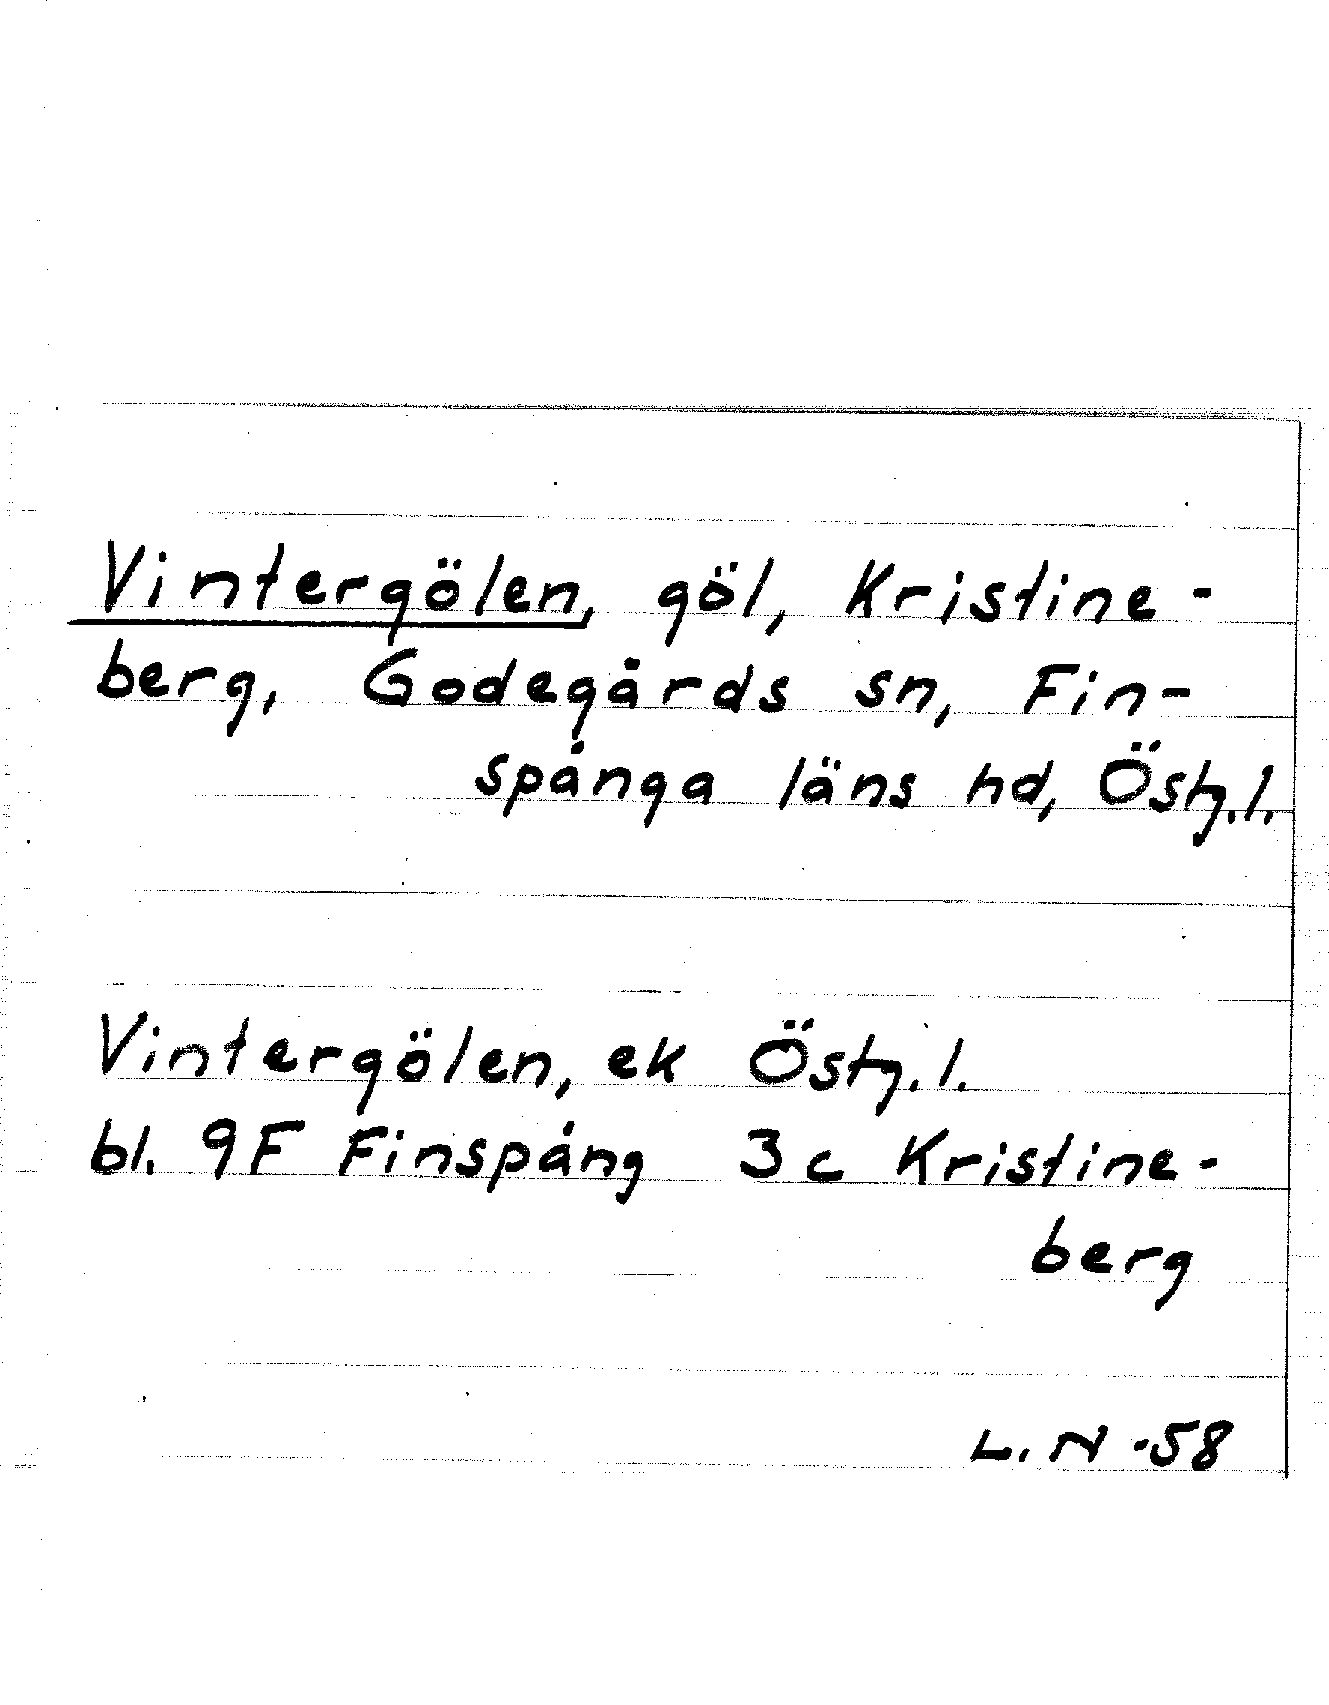 Vintergölen, göl, Kristine-
berg, Godegårds sn, Fin-
spånga läns hd, Östg.l.
Vintergölen, ek Östg.l.
bl. 9F Finspång 3c Kristine-
berg
L.N -58